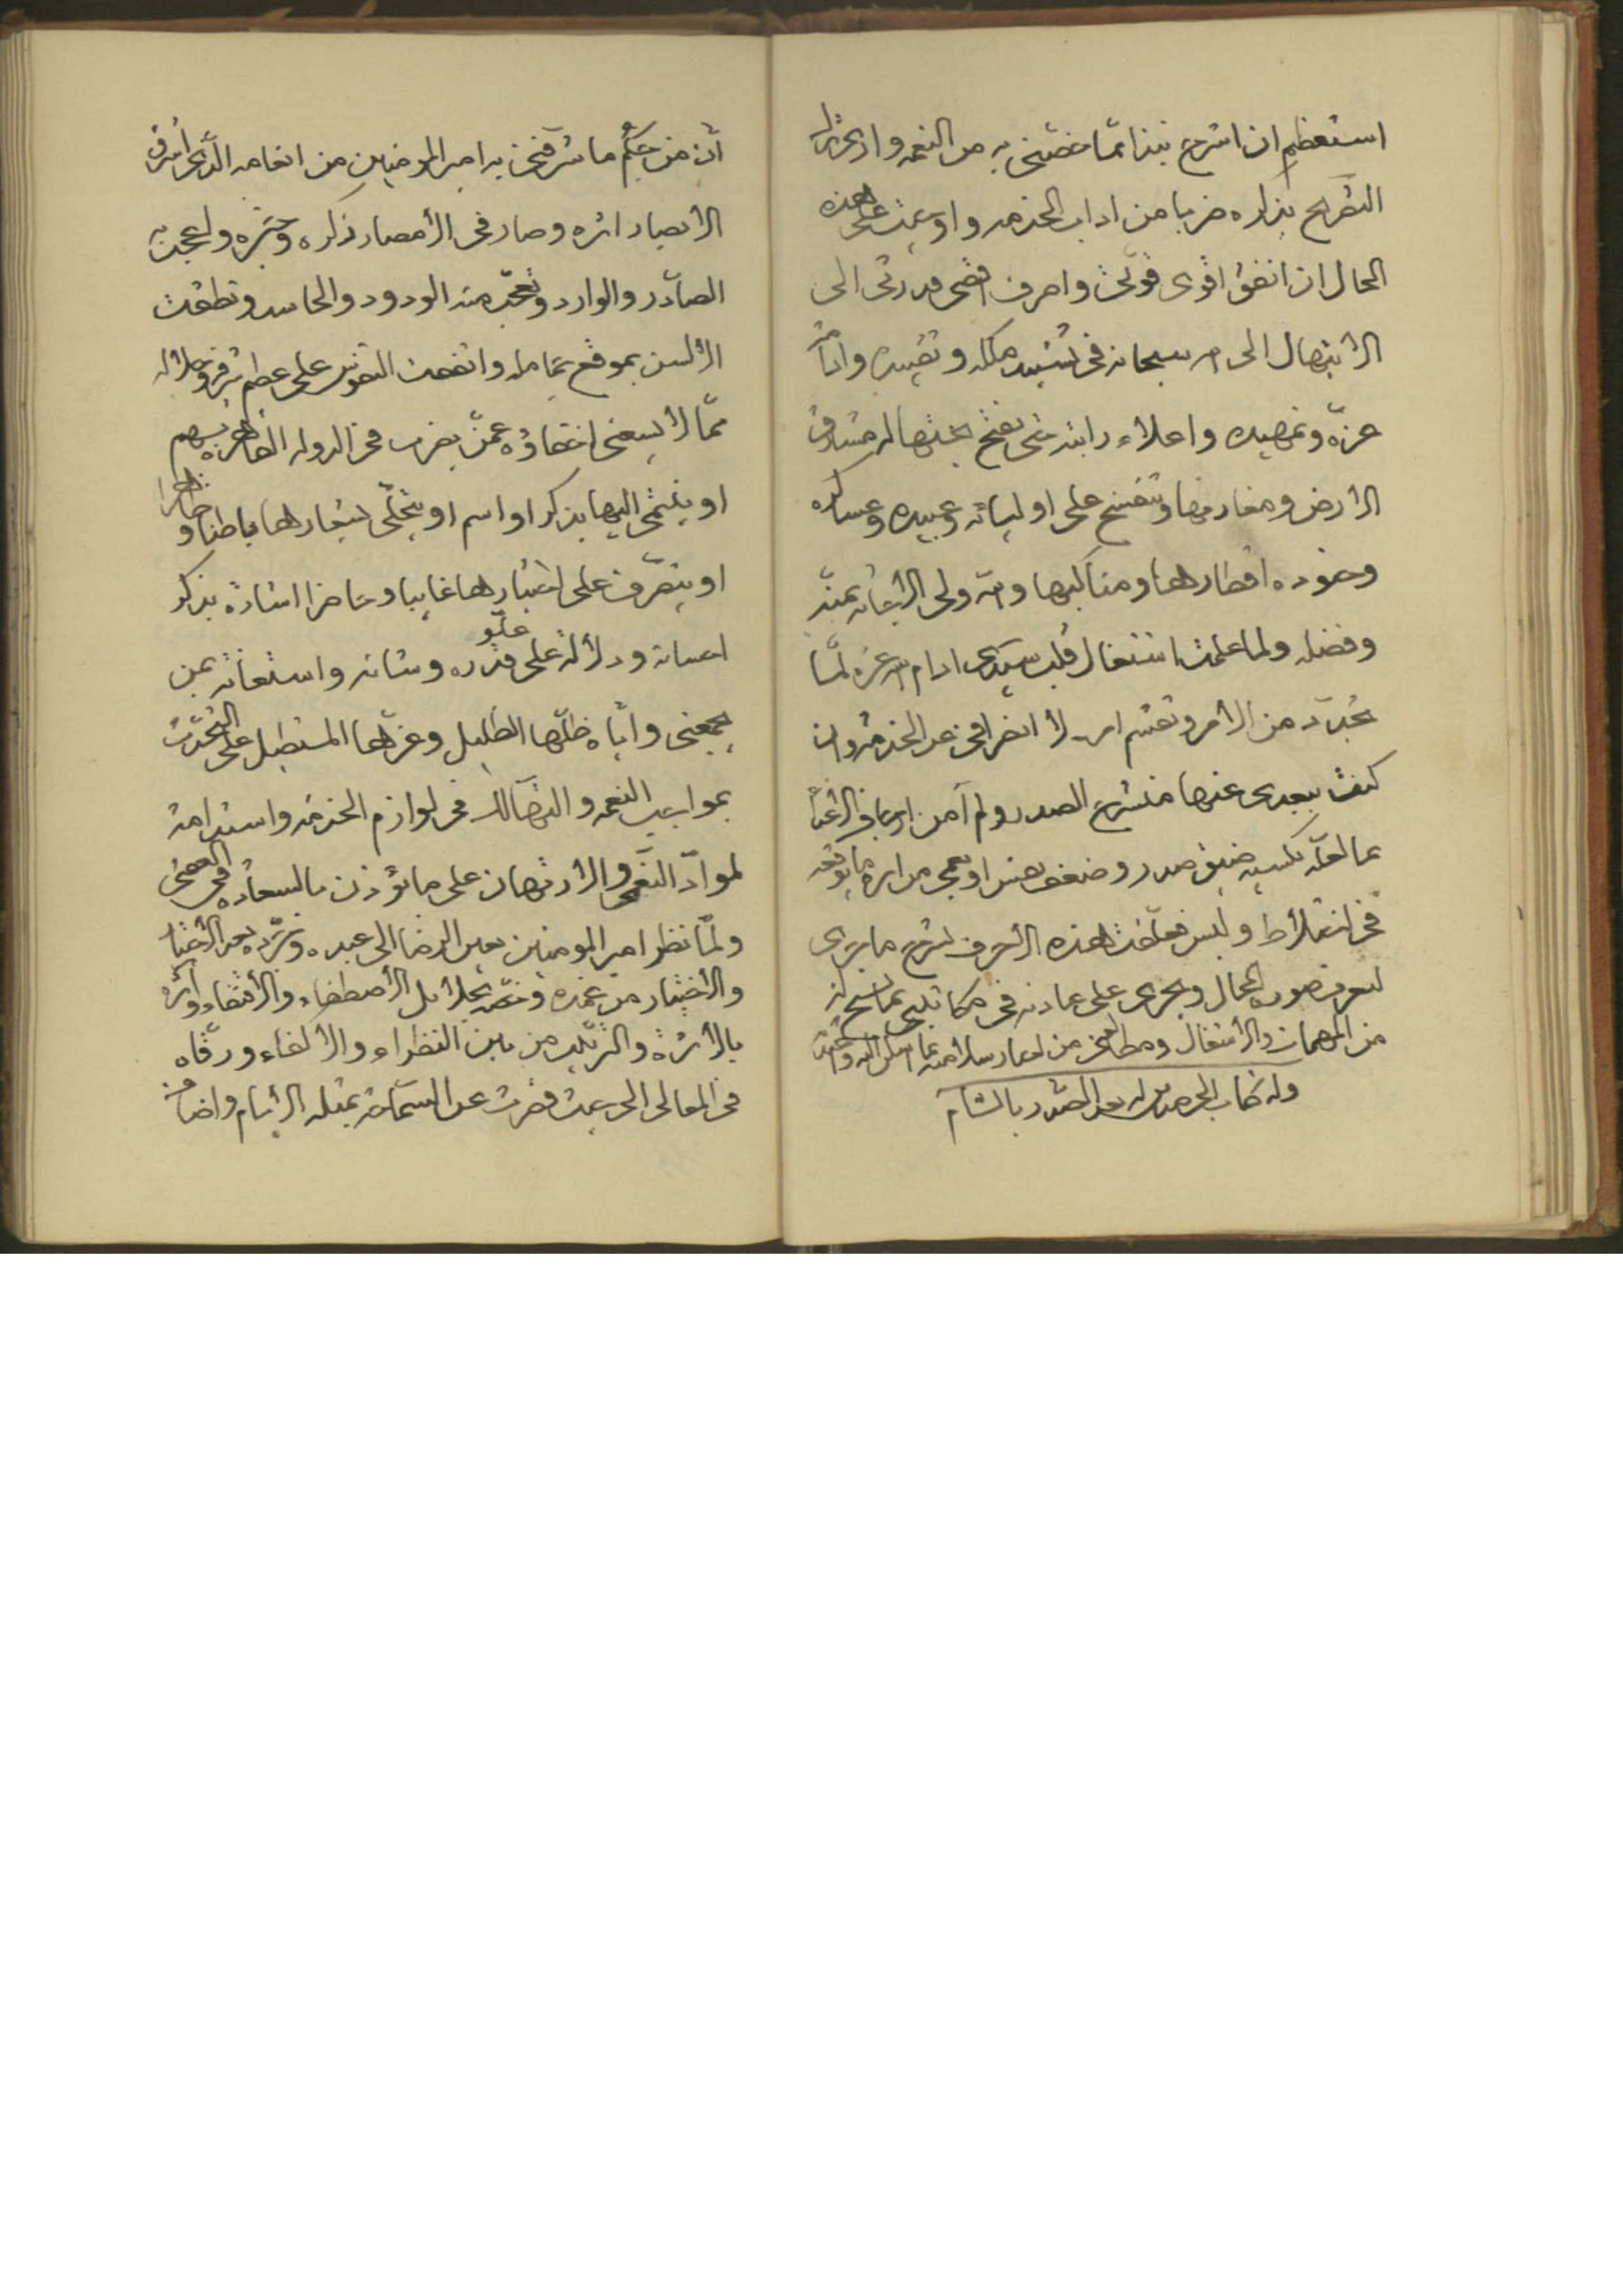 استعظم ان اشرح نبذا مما خصنى به من النعمه وارى ترك
التصريح بذكره ضربا من اداب الخدمه واوجبت على هذه
الحال ان انفق اقوى قوتى واصرف اقصى قدرتى الى
الابتهال الى الله سبحانه فى تشييد ملكه وتقييده وادامة
عزه وتمهيده واعلاء رايته حتى يفتح بحدها له مشارق
الارض ومغاربها وتنفسح على اوليائه وعبيده وعساكره
وجنوده اقطارها ومناكبها والله ولى الاجابه بمنه
وفضله ولما علمت اشتغال قلب سيدى ادام الله عزه لما
تجدد من الامر وتقسم لانصرافى عن الخدمة وان
كنت ببعدى عنها منشرح الصدر ولم آمن
بما لعله يكسبه ضيق صدر وضعف نفس او
فى انتقلاط وليس فعلقت هذه الاحرف لشرح ما جرى
ليعرف صوره الحال ويجرى على عادته فى مكاتبتى بما يسنح له
من المهمات والاشغال ومطالعتى من اخبار سلامته بما اسكن اليه
وله كتاب الى صديق له بعد الصدر بالشام
ان من حكم ما شرفنى به امير المومنين من انعامه الذى اشرق
الابصار اثره وصار فى الامصار ذكره وخبره ولهج به
الصادر والوارد وتعجب منه الودود والحاسد ونطقت
الالسن بموقع تمامله واتفقت النفوس على عظم شرفه وجلاله
مما لا يسعنى اخفاؤه عمن يضرب فى الدوله القاهرة بسهم
او ينتمى اليها بذكر او اسم او يتحلى بشعارها باطنا وظاهرا
او يتصرف على اختيارها غايبا وحاضرا اشادة بذكر
احسانه ودلالة على علو قدره وشانه واستعانة بمن
يجمعنى واياه ظلها الظليل وعزها المستطيل على التحدث
بمواجب النعمه والتهالك فى لوازم الخدمه واستدامة
لمواد النعمى والارتهان على ما يؤذن بالسعاده فى العقبى
ولما نظر امير المومنين بعين الرضا الى عبده وتفرده بعد الاختبار
والاختيار من عنده وخصه بجلائل الاصطفاء والاقتفاء وآثره
بالاثرة والتزلف من بين النظراء والالفاء ورقاه
فى المعالى الى حيث قصرت عن السماحة بمثله الايام واضافت